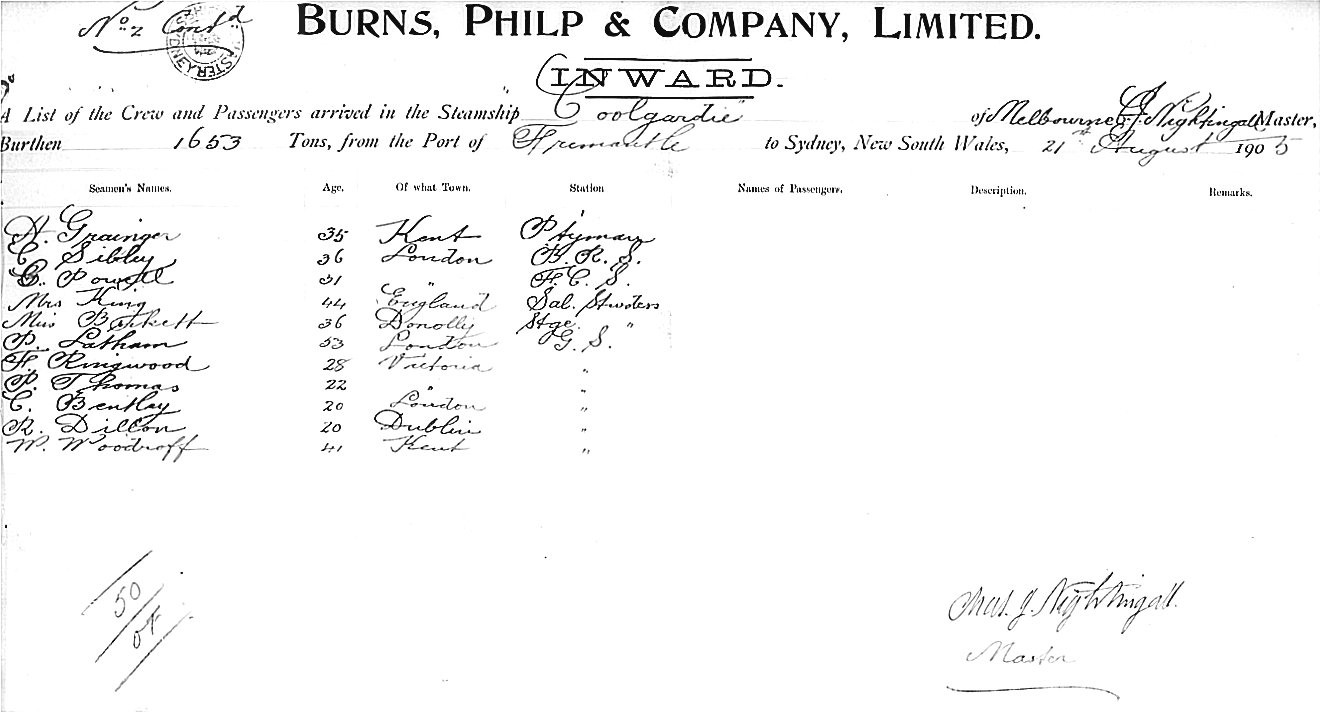 No 2 Contd
BURNS, PHILP & COMPANY, LIMITED.
INWARD.
A List of the Crew and Passengers arrived in the Steamship "Coolgardie" of Melbourne C. J. Nightingall Master,
Burthen 1653 Tons, from the Port of Fremantle to Sydney, New South Wales, 21st August 1905
Seamen's Names. Age. Of what Town. Station Names of Passengers. Description. Remarks.
H. Grainger 35 Kent Ptyman
C. Sibley 36 London B. R. S.
C. Powell 31 " F. C. S.
Mrs King 44 England Sal. Stwdess
Miss Birkett 36 Donolly Stge. "
P. Latham 53 London G. S.
F. Ringwood 28 Victoria "
P. Thomas 22 " "
C. Bentley 20 London "
R. Dillon 20 Dublin "
W. Woodroff 41 Kent "
50
Chas. J. Nightingall.
Master